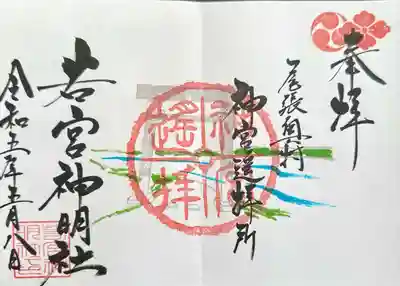 奉拝
尾張
神宮遥拝所
神宮
遙拝
若宮神明社
令和五年五月八日